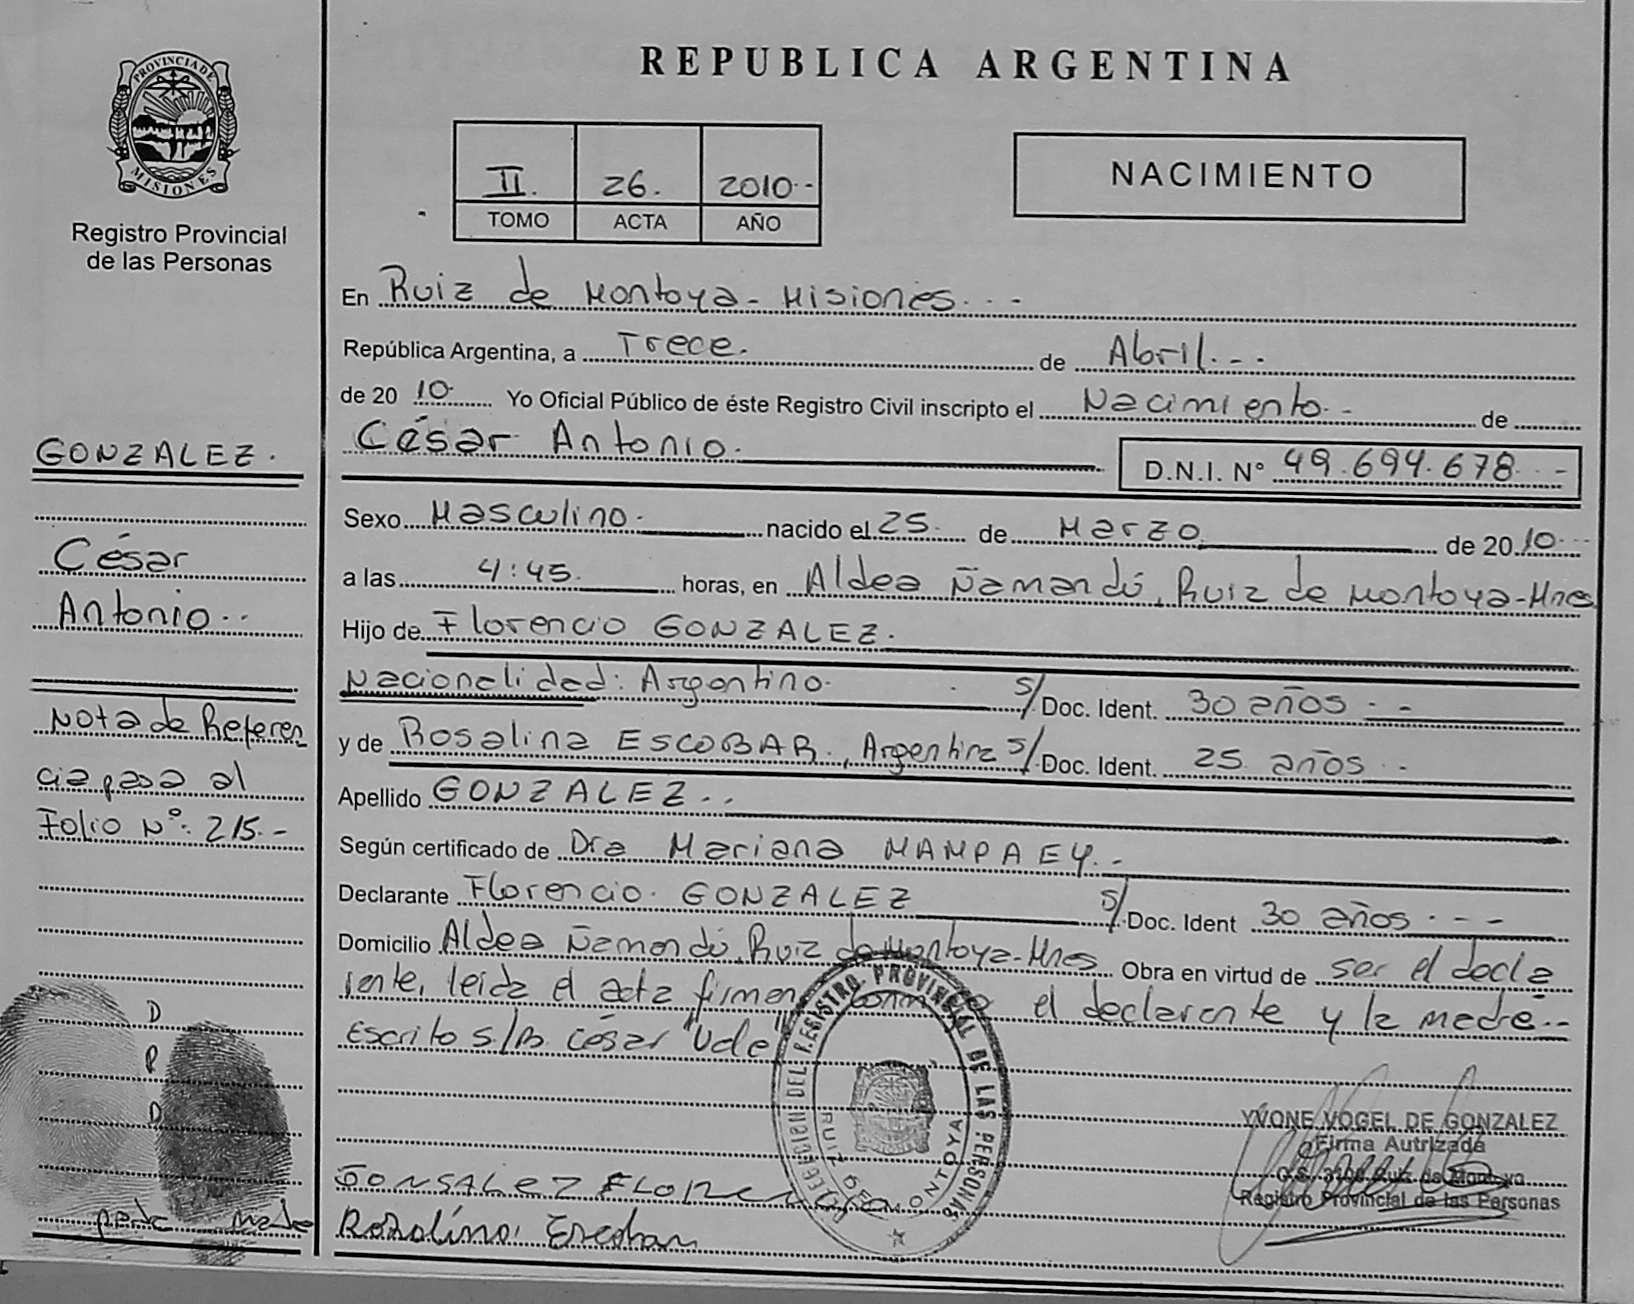 PROVINCIA DE
MISIONES
Registro Provincial
de las Personas
GONZALEZ.
César
Antonio..
Nota de Referen
cia pasa al
Folio Nº: 215.-
D
P
D
REPUBLICA ARGENTINA
II. 26. 2010.-
TOMO ACTA AÑO
NACIMIENTO
En Ruiz de Montoya - Misiones. - -
República Argentina, a Trece. de Abril. - -
de 20 10. Yo Oficial Público de éste Registro Civil inscripto el Nacimiento. - de
César Antonio. D.N.I. Nº 49.694.678 - -
Sexo Masculino. nacido el 25. de Marzo de 20 10. -
a las 4:45. horas, en Aldea Ñamandú, Ruiz de Montoya-Mnes
Hijo de Florencio GONZALEZ.
Nacionalidad: Argentino. S/ Doc. Ident. 30 años . -
y de Rosalina ESCOBAR., Argentina S/ Doc. Ident. 25 años . -
Apellido GONZALEZ . .
Según certificado de Dra Mariana MAMPAEY. -
Declarante Florencio. GONZALEZ S/ Doc. Ident 30 años . - -
Domicilio Aldea Ñamandú, Ruiz de Montoya-Mnes Obra en virtud de ser el decla
rante, leída el acta firman el declarante y la madre. -
Escrito S/B. César "Vale"
DELEGACION DEL REGISTRO PROVINCIAL DE LAS PERSONAS
RUIZ DE MONTOYA
YVONE VOGEL DE GONZALEZ
Firma Autrizada
Ruiz de Montoya
Registro Provincial de las Personas
GONSALEZ FLORENCIO
Rosalina Escobar
padre madre